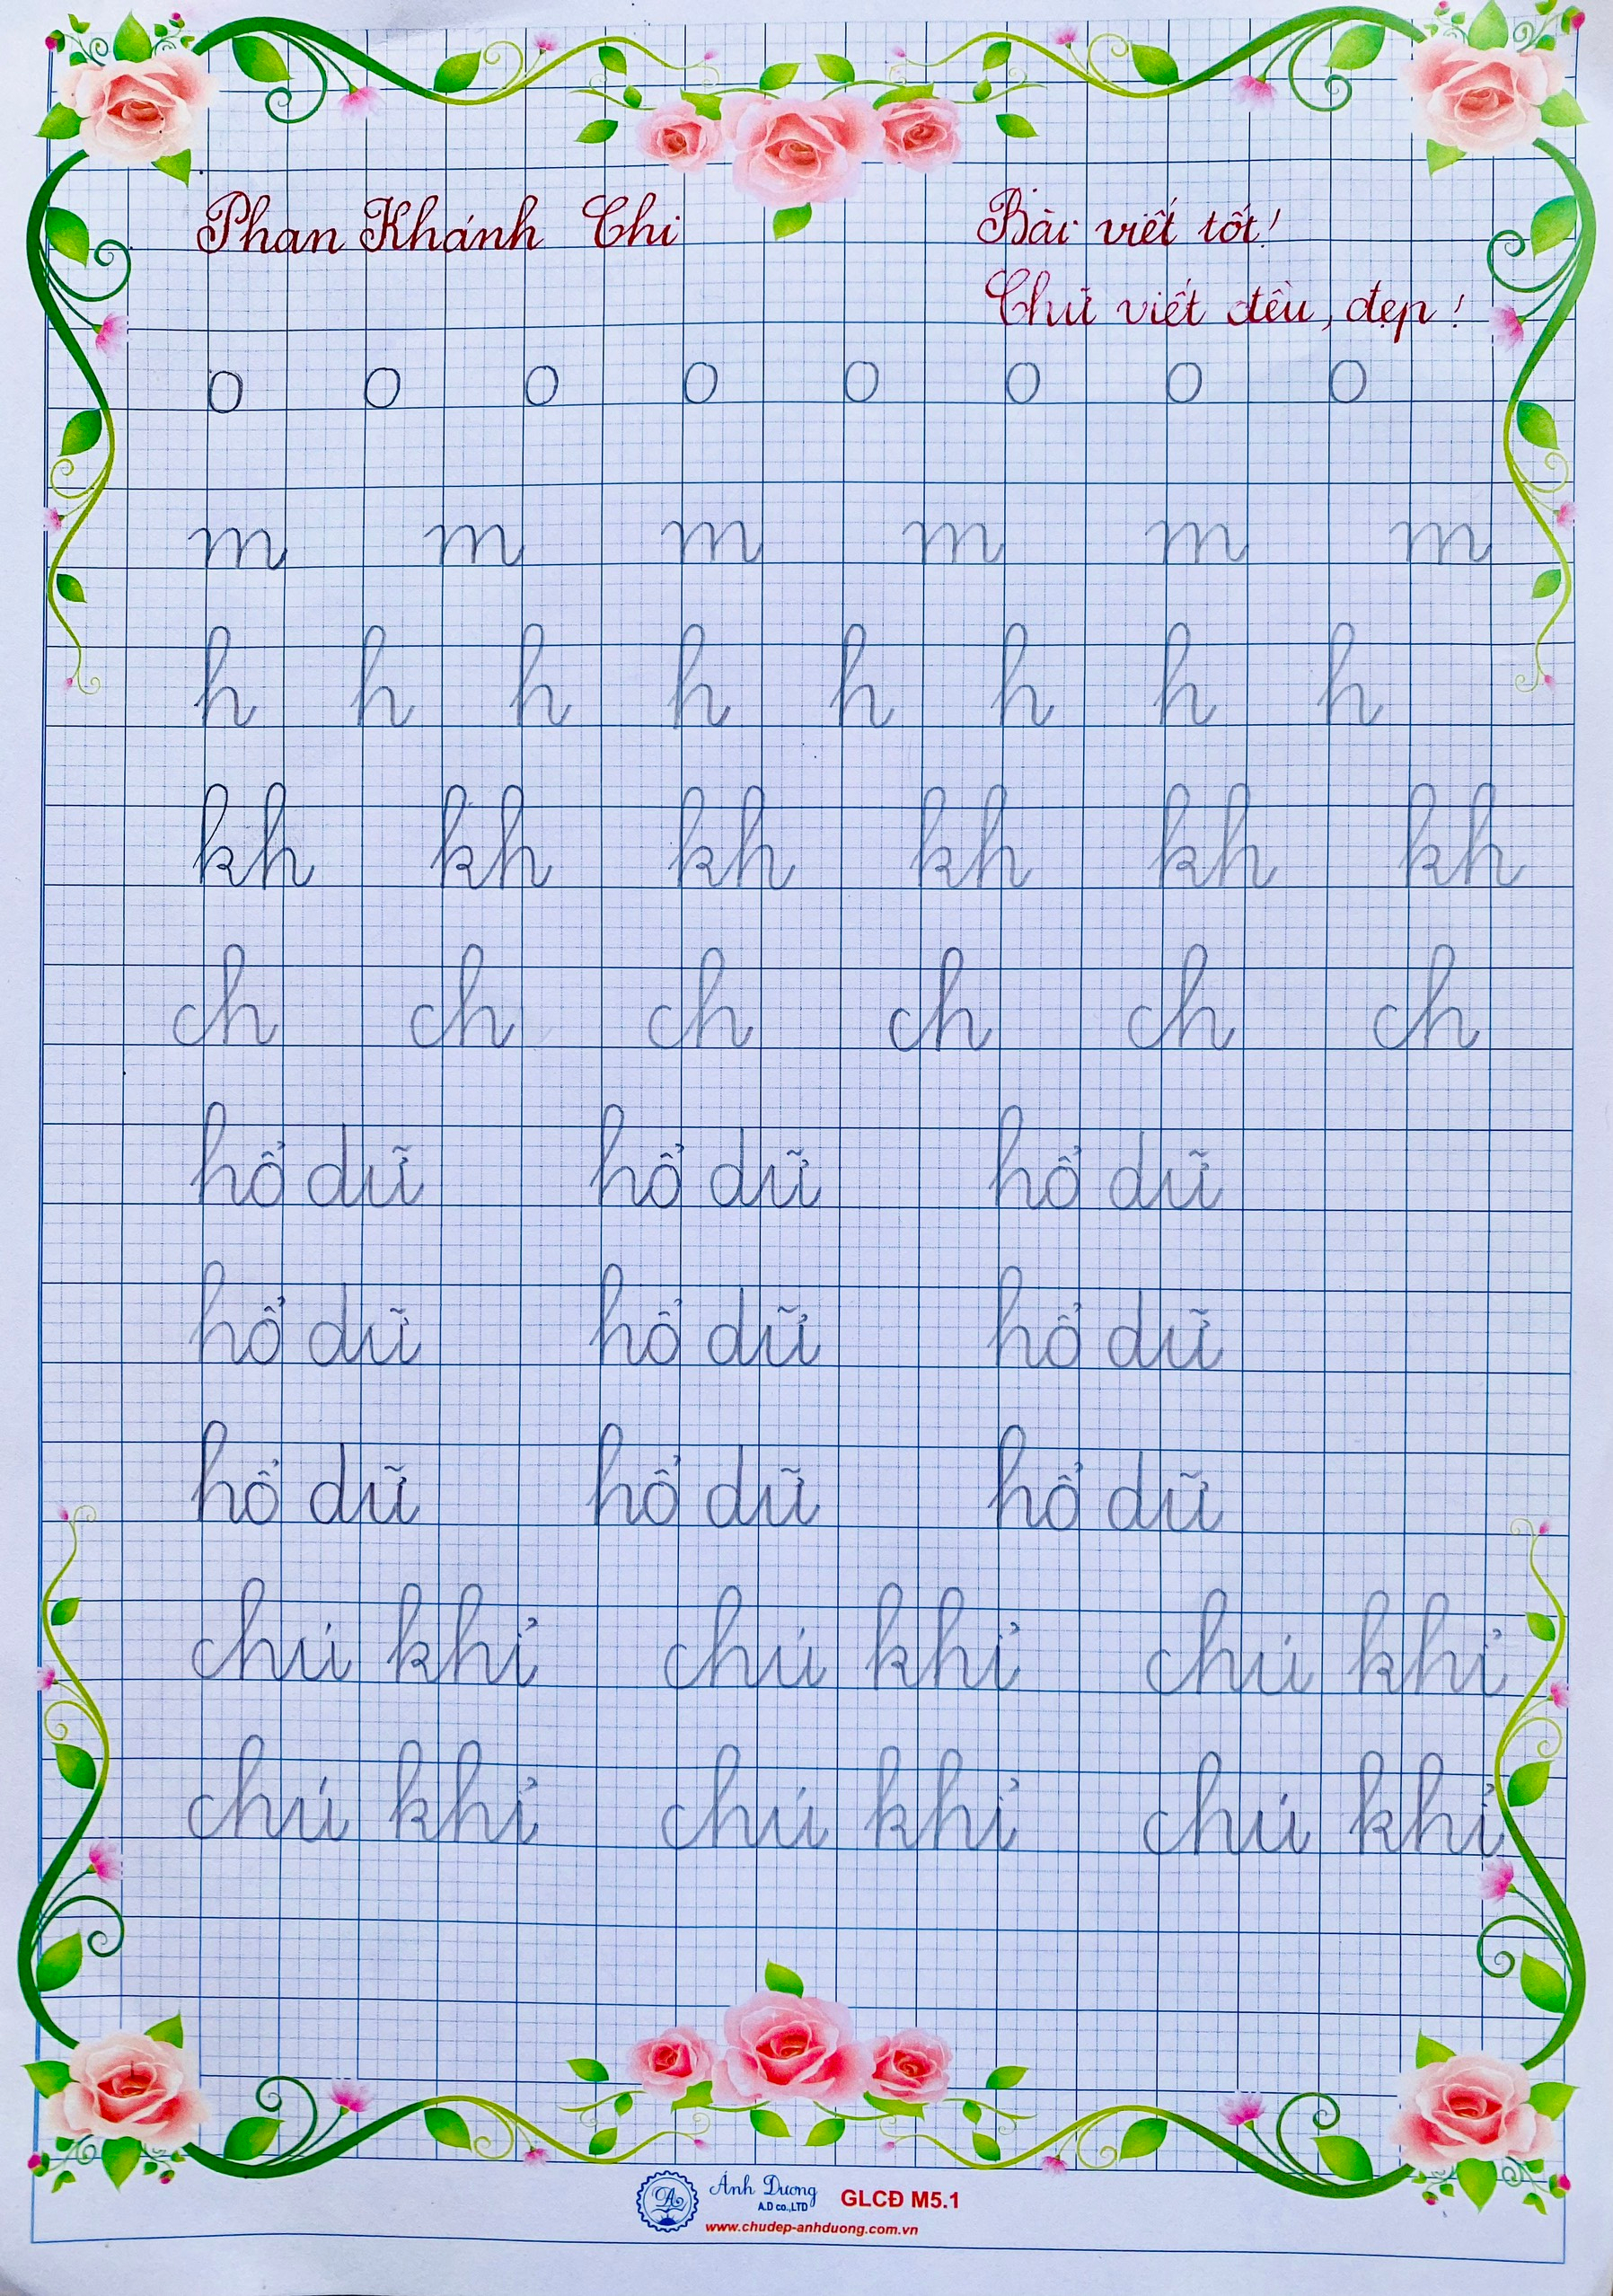 Phan Khánh Chi
Bài viết tốt!
Chữ viết đều, đẹp!
o o o o o o o o
m m m m m m
h h h h h h h h
kh kh kh kh kh kh
ch ch ch ch ch ch
hổ dữ hổ dữ hổ dữ
hổ dữ hổ dữ hổ dữ
hổ dữ hổ dữ hổ dữ
chú khỉ chú khỉ chú khỉ
chú khỉ chú khỉ chú khỉ
Ánh Dương
A.D co.,LTD
GLCĐ M5.1
www.chudep-anhduong.com.vn